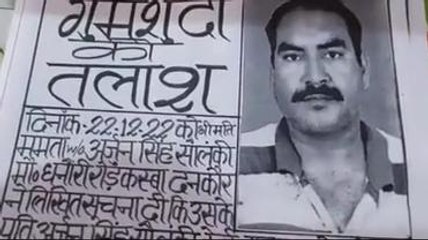 गुमशुदा
की
तलाश
दिनांक-22.12.22 को श्रीमति
ममता w/o अर्जन सिंह सोलंकी
मो० धनौरी रोड़ कस्बा दनकौर
ने लिखित सूचना दी कि उसके
पति अर्जन सिंह सोलंकी